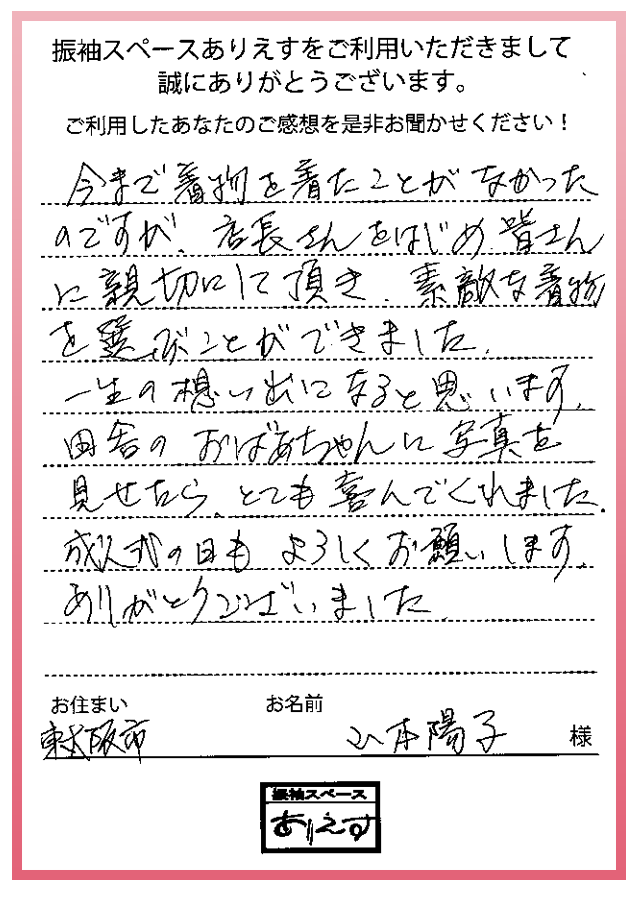 振袖スペースありえすをご利用いただきまして
誠にありがとうございます。
ご利用したあなたのご感想を是非お聞かせください！
今まで着物を着たことがなかった
のですが、店長さんをはじめ、皆さん
に親切にして頂き、素敵な着物
を選ぶことができました。
一生の想い出になると思います。
田舎のおばあちゃんに写真を
見せたら、とても喜んでくれました。
成人式の日もよろしくお願いします。
ありがとうございました。
お住まい
お名前
東大阪市
山本陽子
様
振袖スペース
ありえす